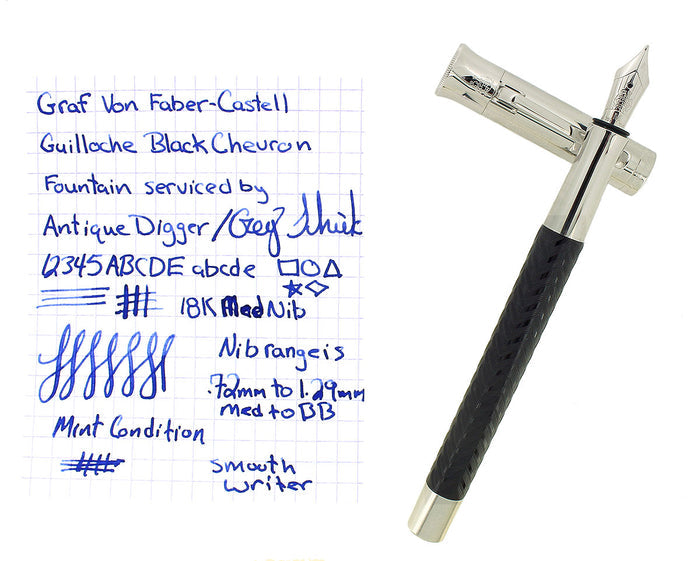 Graf Von Faber-Castell
Guilloche Black Chevron
Fountain serviced by
Antique Digger /Greg
12345 ABCDE abcde
18K Med Nib
Nib range is
.72mm to 1.29mm
Med to BB
Mint Condition
smooth
writer